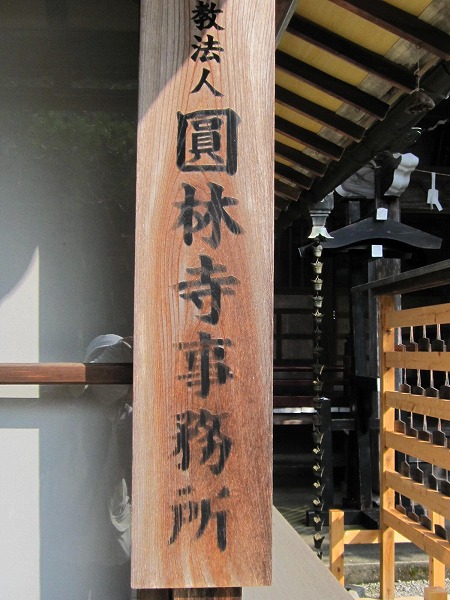 教法人
圓林寺事務所